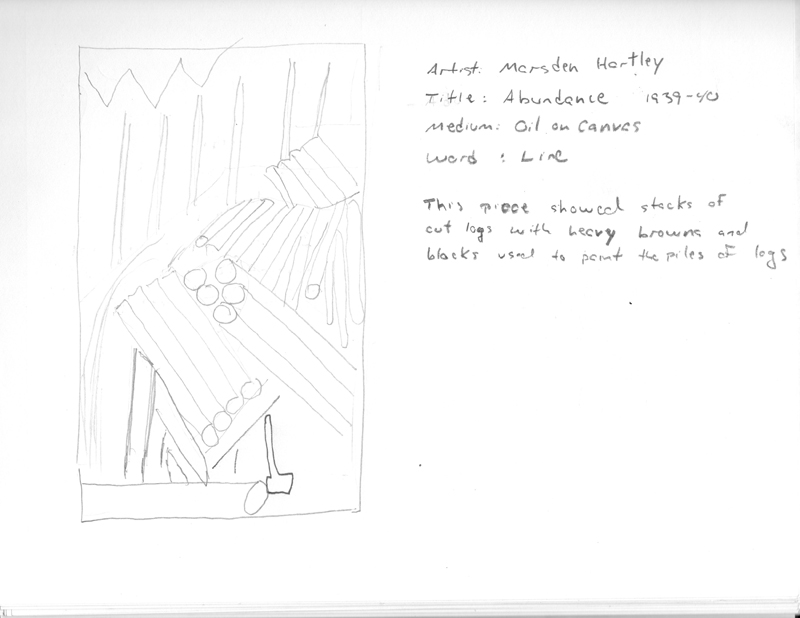 Artist: Marsden Hartley
Title: Abundance 1939-40
Medium: Oil on Canvas
Word : Line
This piece showed stacks of
cut logs with heavy browns and
blacks used to paint the piles of logs